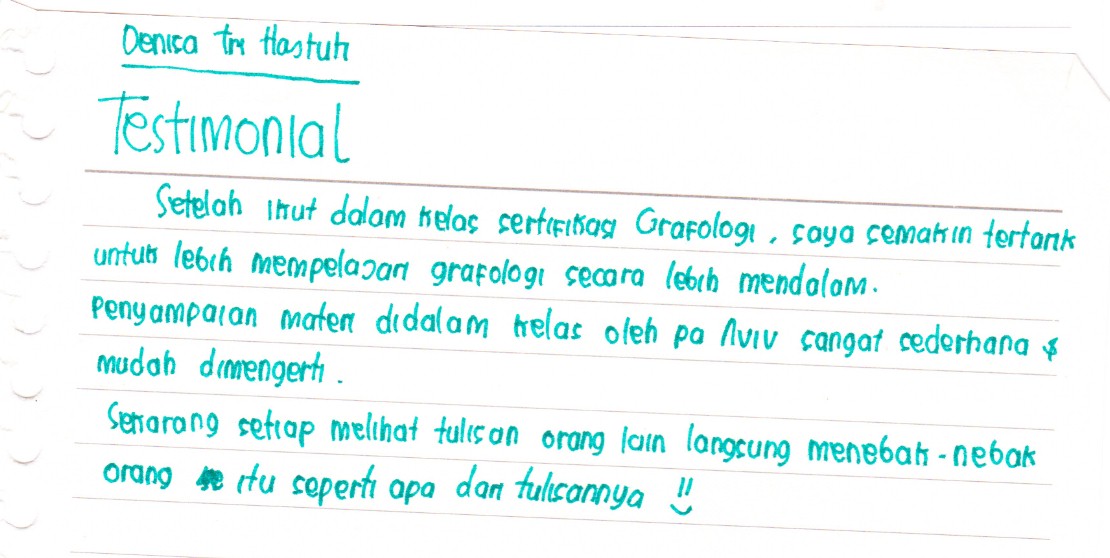 Denisa tri Hastuti
Testimonial
Setelah ikut dalam kelas sertifikasi Grafologi, saya semakin tertarik
untuk lebih mempelajari grafologi secara lebih mendalam.
Penyampaian materi didalam kelas oleh pa Aviv sangat sederhana &
mudah dimengerti.
Sekarang setiap melihat tulisan orang lain langsung menebak-nebak
orang itu seperti apa dari tulisannya !!